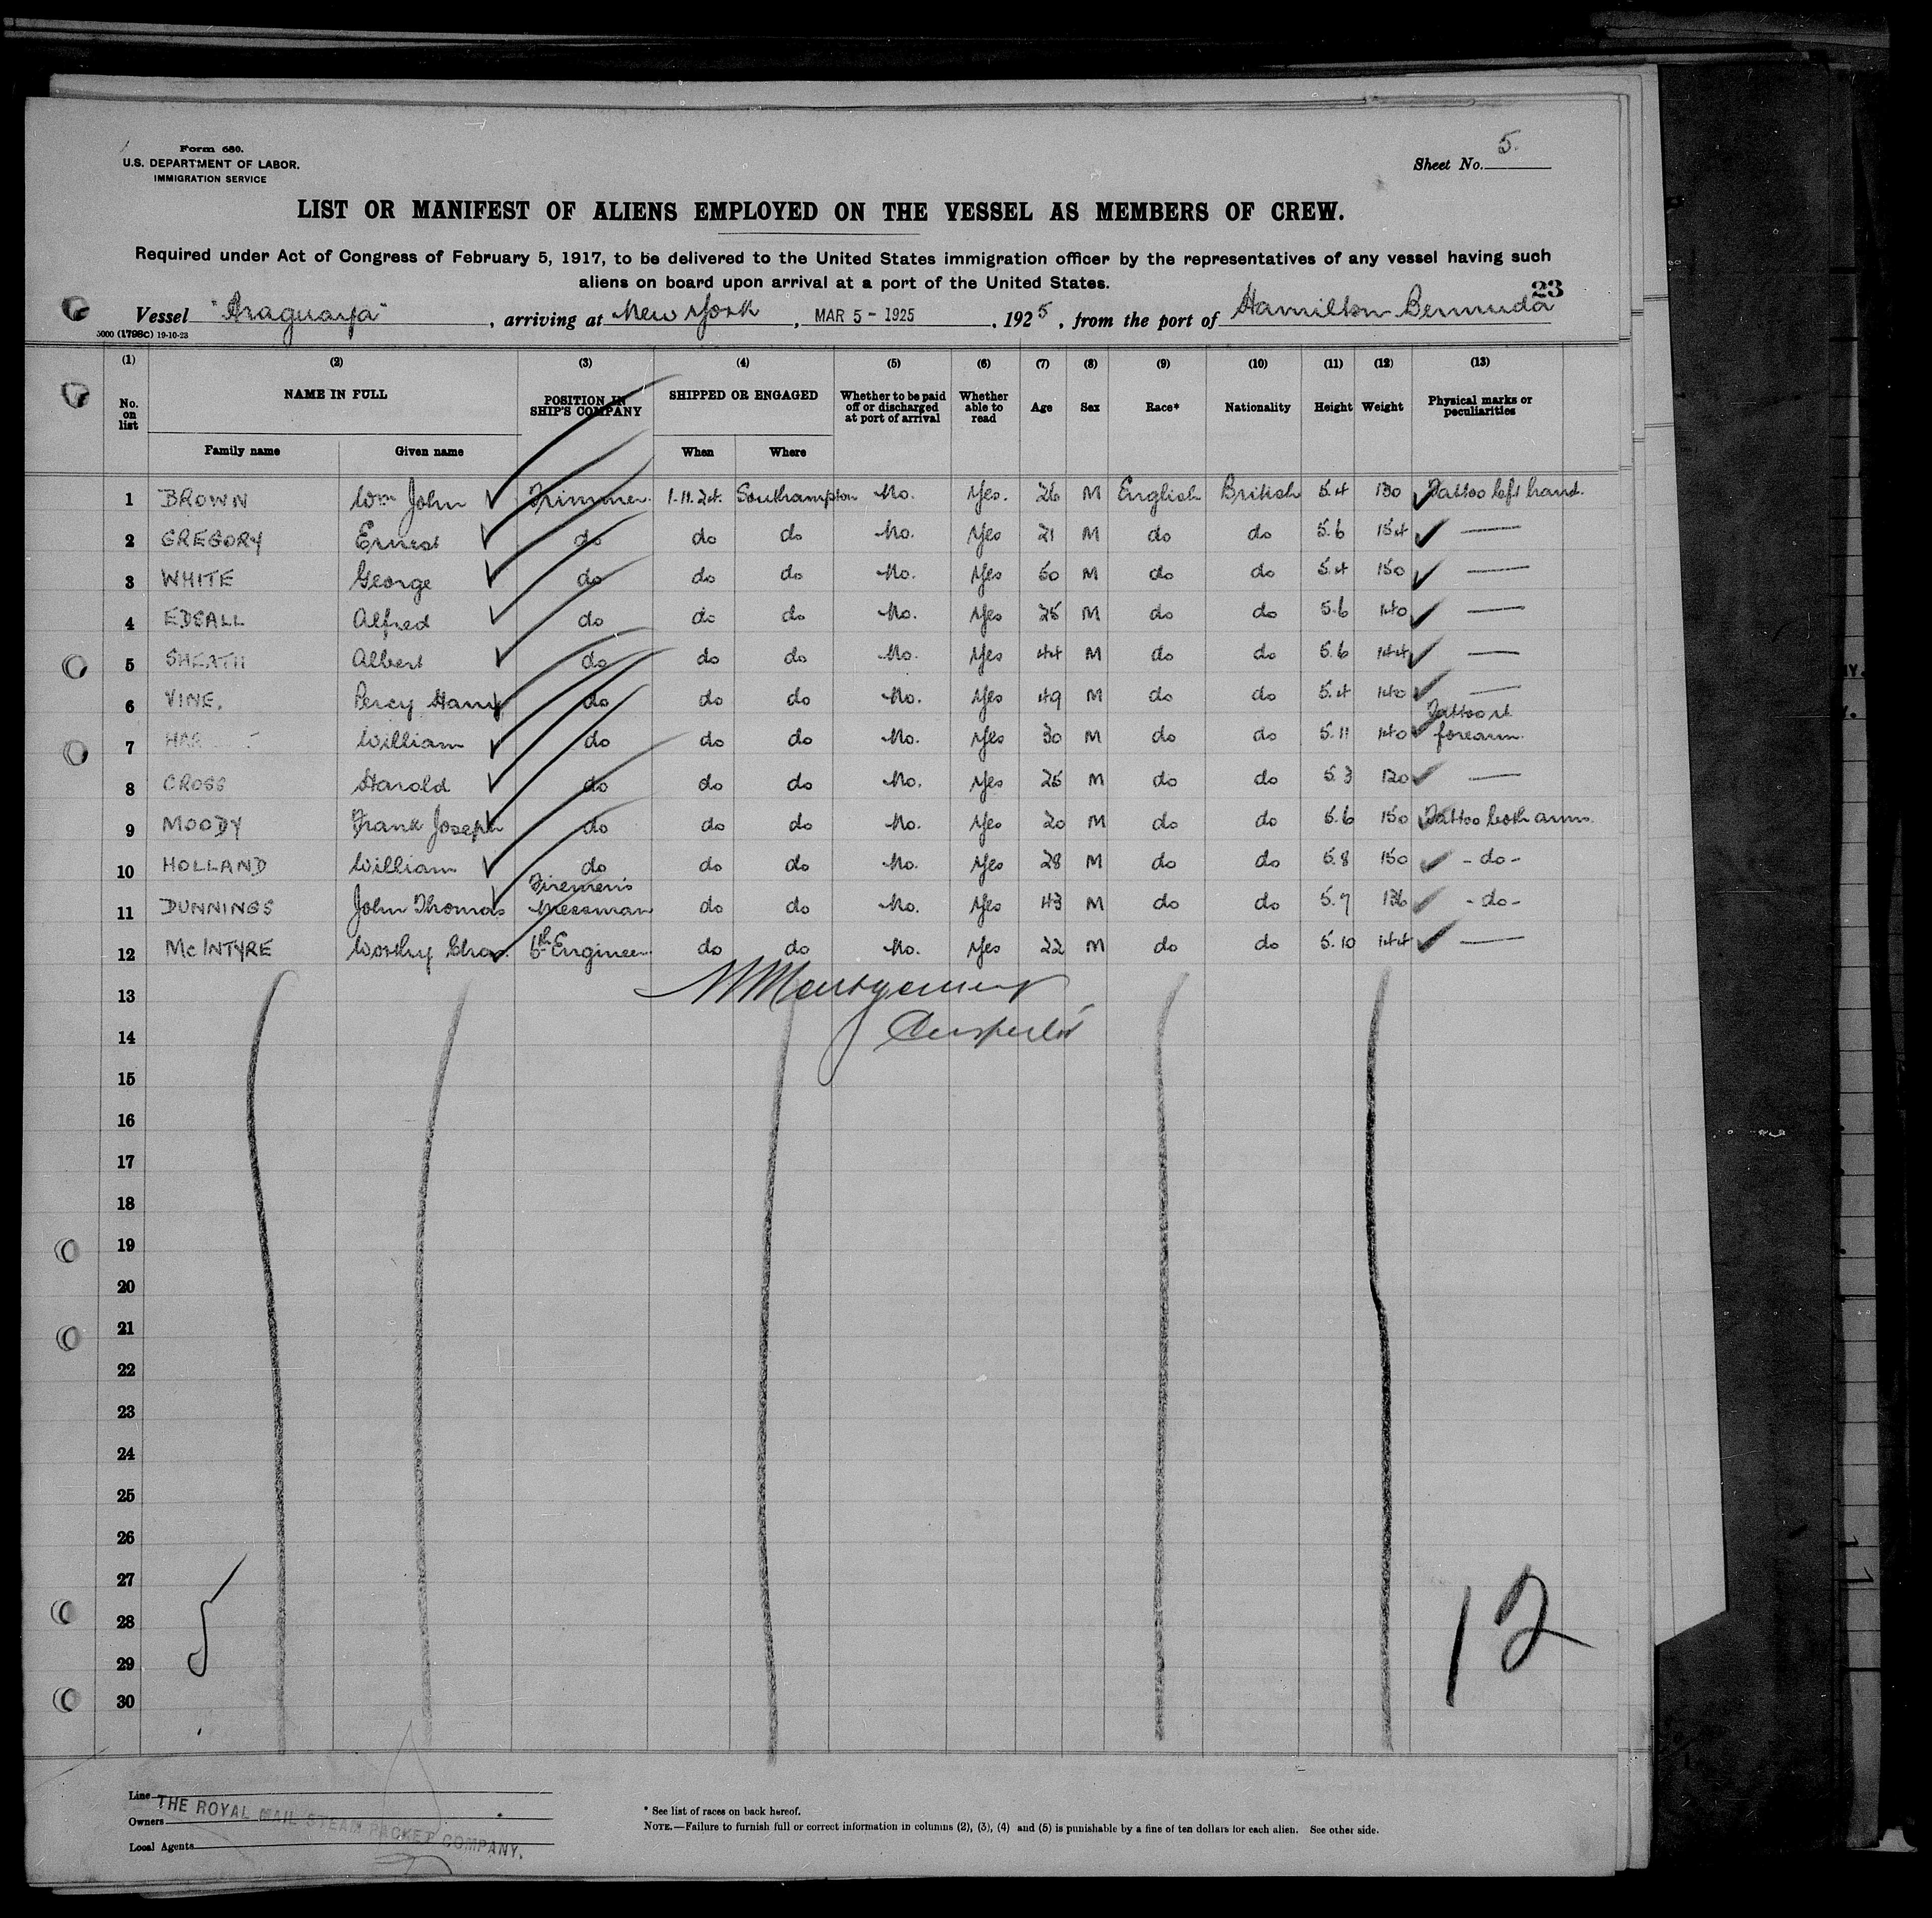 Form 680.
U.S. DEPARTMENT OF LABOR.
IMMIGRATION SERVICE
Sheet No. 5.
LIST OR MANIFEST OF ALIENS EMPLOYED ON THE VESSEL AS MEMBERS OF CREW.
Required under Act of Congress of February 5, 1917, to be delivered to the United States immigration officer by the representatives of any vessel having such
aliens on board upon arrival at a port of the United States.
23
Vessel "Araguaya", arriving at New York, MAR 5 - 1925, 1925, from the port of Hamilton Bermuda
5000 (1798C) 19-10-23
(1) (2) (3) (4) (5) (6) (7) (8) (9) (10) (11) (12) (13)
No. on list NAME IN FULL POSITION IN SHIP'S COMPANY SHIPPED OR ENGAGED Whether to be paid off or discharged at port of arrival Whether able to read Age Sex Race* Nationality Height Weight Physical marks or peculiarities
Family name Given name When Where
1 BROWN Wm John Trimmer 1.11.24. Southampton No. Yes. 26 M English British 5.4 130 Tattoo left hand.
2 GREGORY Ernest do do do No. Yes 21 M do do 5.6 154 —
3 WHITE George do do do No. Yes 50 M do do 5.4 150 —
4 EDSALL Alfred do do do No. Yes 25 M do do 5.6 140 —
5 SHEATH Albert do do do No. Yes 44 M do do 5.6 144 —
6 VINE. Percy Harry do do do No. Yes 49 M do do 5.4 140 —
7 William do do do No. Yes 30 M do do 5.11 140 Tattoo rt forearm.
8 CROSS Harold do do do No. Yes 25 M do do 5.3 120 —
9 MOODY Frank Joseph do do do No. Yes 20 M do do 5.6 150 Tattoo both arms.
10 HOLLAND William do do do No. Yes 28 M do do 5.8 150 - do -
11 DUNNINGS John Thomas Firemen's Messman do do No. Yes 43 M do do 5.7 136 - do -
12 McINTYRE Worthy Chas. 6th Engineer do do No. Yes 22 M do do 5.10 144 —
13 Montgomery
14
15
16
17
18
19
20
21
22
23
24
25
26
27
28
29
30
5
12
Line
THE ROYAL MAIL STEAM PACKET COMPANY.
Owners
Local Agents
* See list of races on back hereof.
NOTE.—Failure to furnish full or correct information in columns (2), (3), (4) and (5) is punishable by a fine of ten dollars for each alien. See other side.